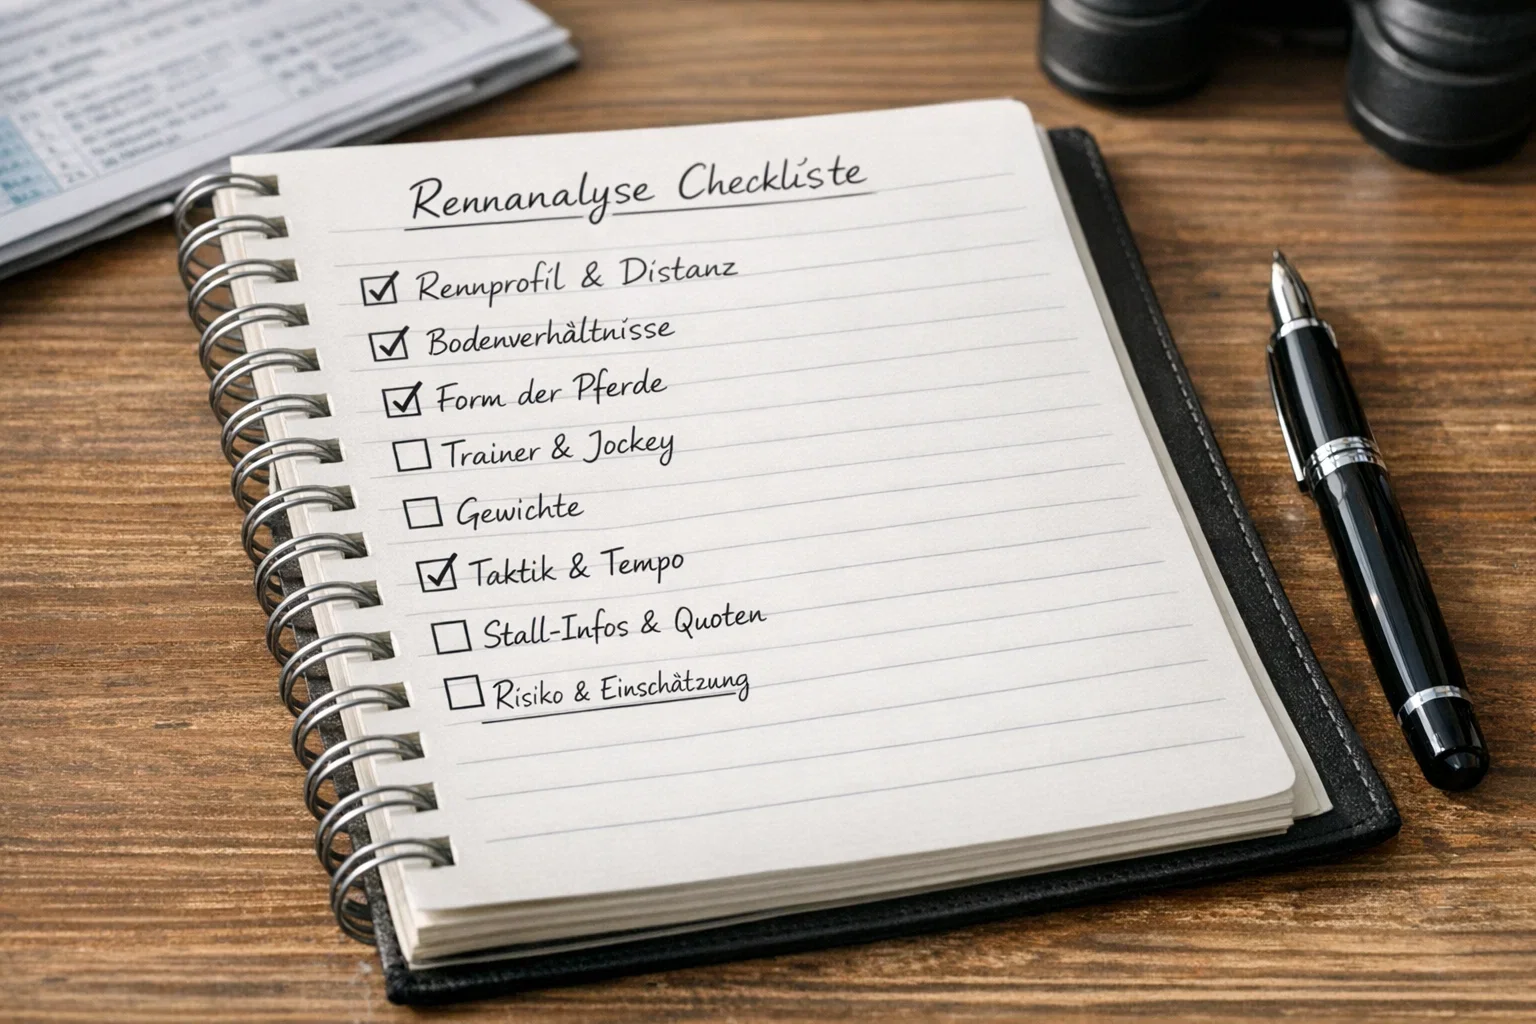 Rennanalyse Checkliste
Rennprofil & Distanz
Bodenverhältnisse
Form der Pferde
Trainer & Jockey
Gewichte
Taktik & Tempo
Stall-Infos & Quoten
Risiko & Einschätzung